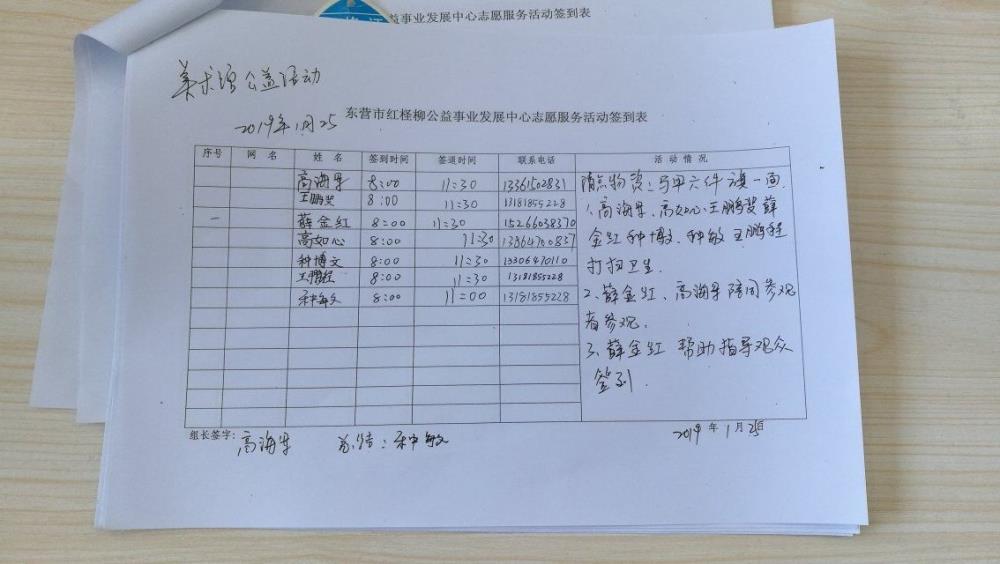 益事业发展中心志愿服务活动签到表
美术馆公益活动
2019年1月25
东营市红柽柳公益事业发展中心志愿服务活动签到表
序号 网名 姓名 签到时间 签退时间 联系电话 活动情况
高海军 8:00 11:30 13361502831
王鹏斐 8:00 11:30 13181855228
薛金红 8:00 11:30 15266038370
高如心 8:00 11:30 13864700837
种博文 8:00 11:30 13306470110
王鹏程 8:00 11:30 13181855228
种敏 8:00 11:00 13181855228
物资:马甲六件 旗一面.
1、高海军、高如心、王鹏斐 薛
金红 种博文、种敏 王鹏程
打扫卫生.
2、薛金红、高海军 陪同参观
者参观.
3、薛金红 帮助指导观众
签到.
组长签字: 高海军 总结:种敏
2019年1月25日